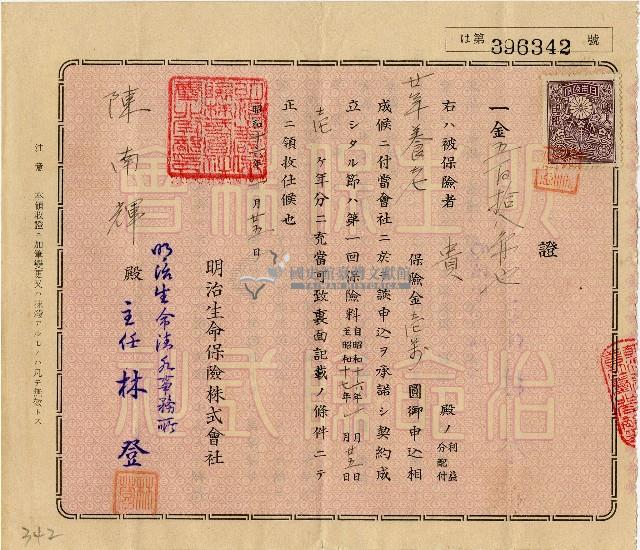 は第 396342 號
證
一金五百拾
廿年養老
右ハ被保險者 貴 殿ノ利益分配付
保險金壱萬圓御申込相
成候ニ付當會社ニ於テ該申込ヲ承諾シ契約成
立シタル節ハ第一回保險料自昭和十六年 月 日至昭和十七年 月廿五日
壱ヶ年分ニ充當可致裏面記載ノ條件ニテ
正ニ領收仕候也
昭和十六年 月廿五日
明治生命保險株式會社
陳南輝 殿
明治生命 事務所
主任 林登
注意 本領收證ニ加筆變更又ハ抹消アルモノハ凡テ無效トス
國史館臺灣文獻館
TAIWAN HISTORICA
342